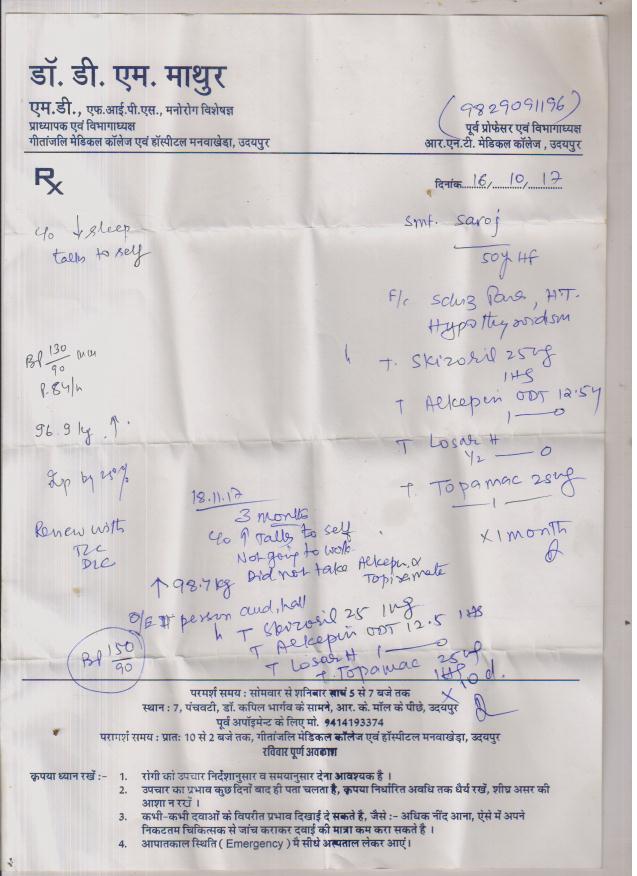 डॉ. डी. एम. माथुर
एम.डी., एफ.आई.पी.एस., मनोरोग विशेषज्ञ
प्राध्यापक एवं विभागाध्यक्ष
गीतांजलि मेडिकल कॉलेज एवं हॉस्पीटल मनवाखेड़ा, उदयपुर
(9829091196)
पूर्व प्रोफेसर एवं विभागाध्यक्ष
आर.एन.टी. मेडिकल कॉलेज, उदयपुर
Rx
दिनांक 16/10/17
Smt. Saroj
50y Hf
c/o ↓ sleep
talks to self
F/c Schiz Para, HT.
Hypothyroidism
BP 130/90 mm
P. 84/
96.9 kg ↑.
T. Skizoril 25mg
1HS
T Alkepin ODT 12.5
1 — 0
T Losar H
1/2 — 0
T. Topamac 25mg
— 1 —
x 1 month
Imp by 25%
Renew with
TLC
DLC
18.11.17
3 months
c/o ↑ Talks to self
Not going to work
Did not take Alkepin &
Topiramate
↑ 98.7 kg
O/E II person aud, hall
BP 150/90
T Skizoril 25 1mg
T Alkepin ODT 12.5 1HS
T Losar H 1 — 0
T. Topamac 25mg
1HS
x 10 d.
परामर्श समय : सोमवार से शनिवार सायं 5 से 7 बजे तक
स्थान : 7, पंचवटी, डॉ. कपिल भार्गव के सामने, आर. के. मॉल के पीछे, उदयपुर
पूर्व अपॉइमेन्ट के लिए मो. 9414193374
परागर्श समय : प्रातः 10 से 2 बजे तक, गीतांजलि मेडिकल कॉलेज एवं हॉस्पीटल मनवाखेड़ा, उदयपुर
रविवार पूर्ण अवकाश
कृपया ध्यान रखें :- 1. रोगी को उपचार निर्देशानुसार व समयानुसार देना आवश्यक है ।
2. उपचार का प्रभाव कुछ दिनों बाद ही पता चलता है, कृपया निर्धारित अवधि तक धैर्य रखें, शीघ्र असर की
आशा न रखें ।
3. कभी-कभी दवाओं के विपरीत प्रभाव दिखाई दे सकते है, जैसे :- अधिक नींद आना, ऐसे में अपने
निकटतम चिकित्सक से जांच कराकर दवाई की मात्रा कम करा सकते है ।
4. आपातकाल स्थिति ( Emergency ) मै सीधे अस्पताल लेकर आएं।